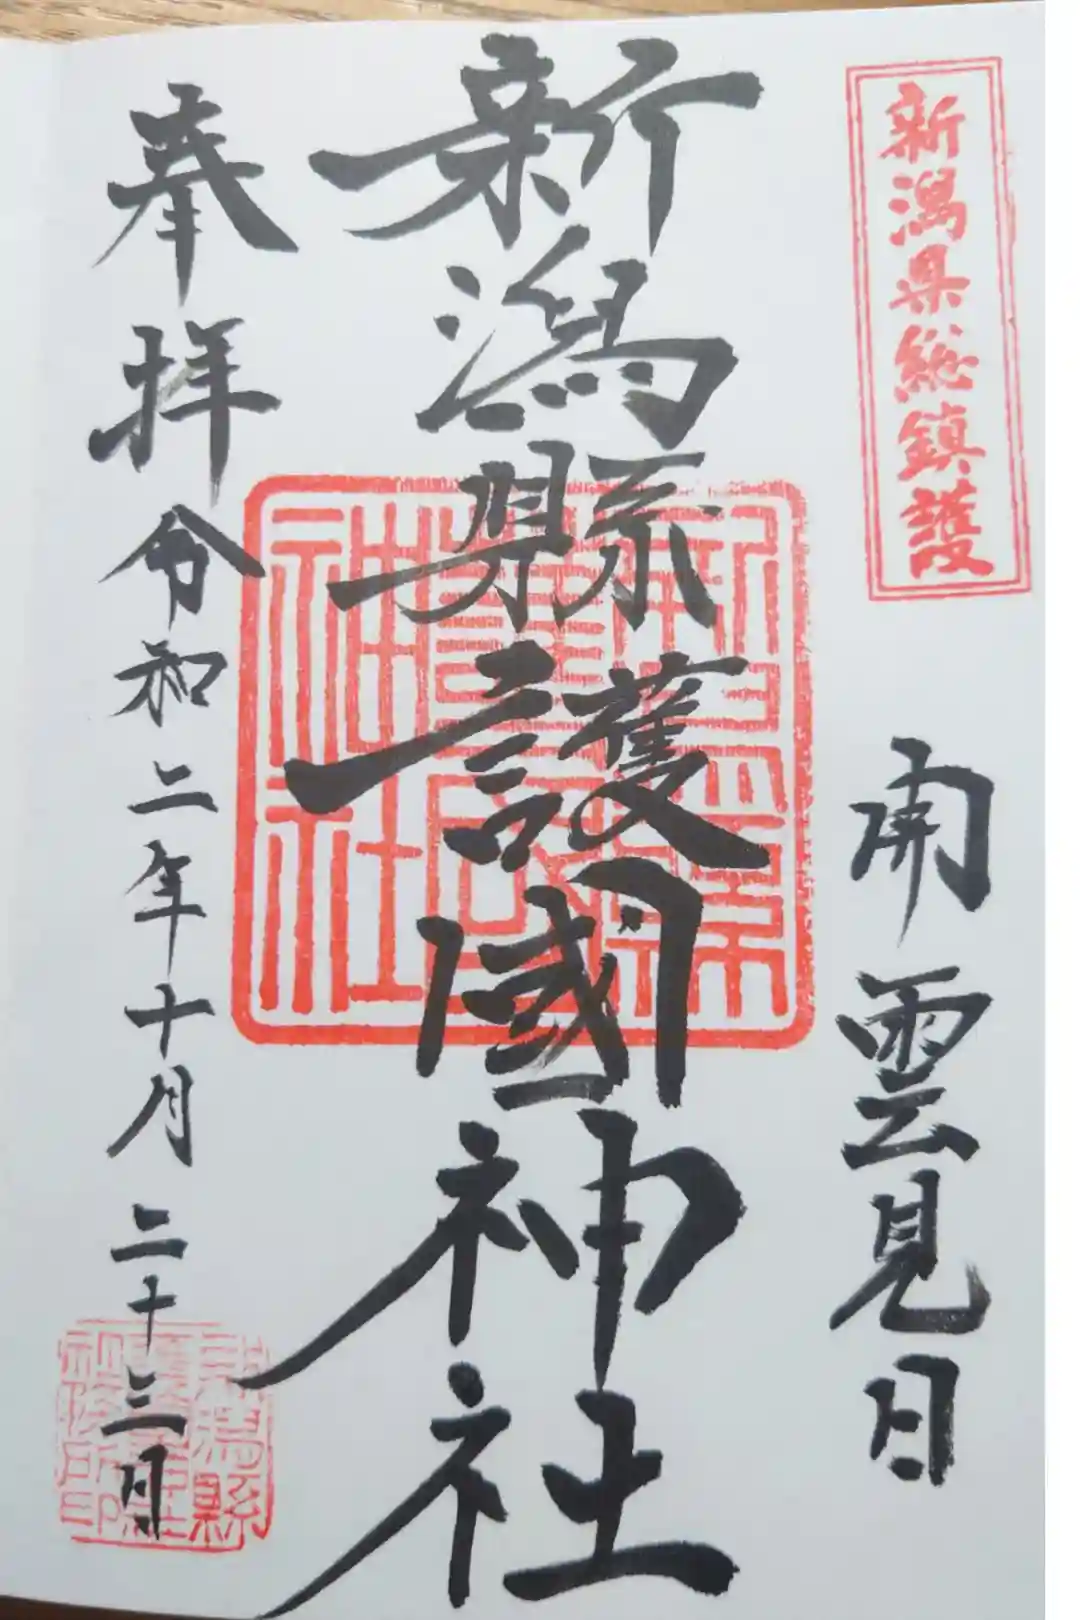 新潟県総鎮護
開雲見日
新潟縣護國神社
新潟縣
護國
神社
奉拝
令和二年十月二十三日